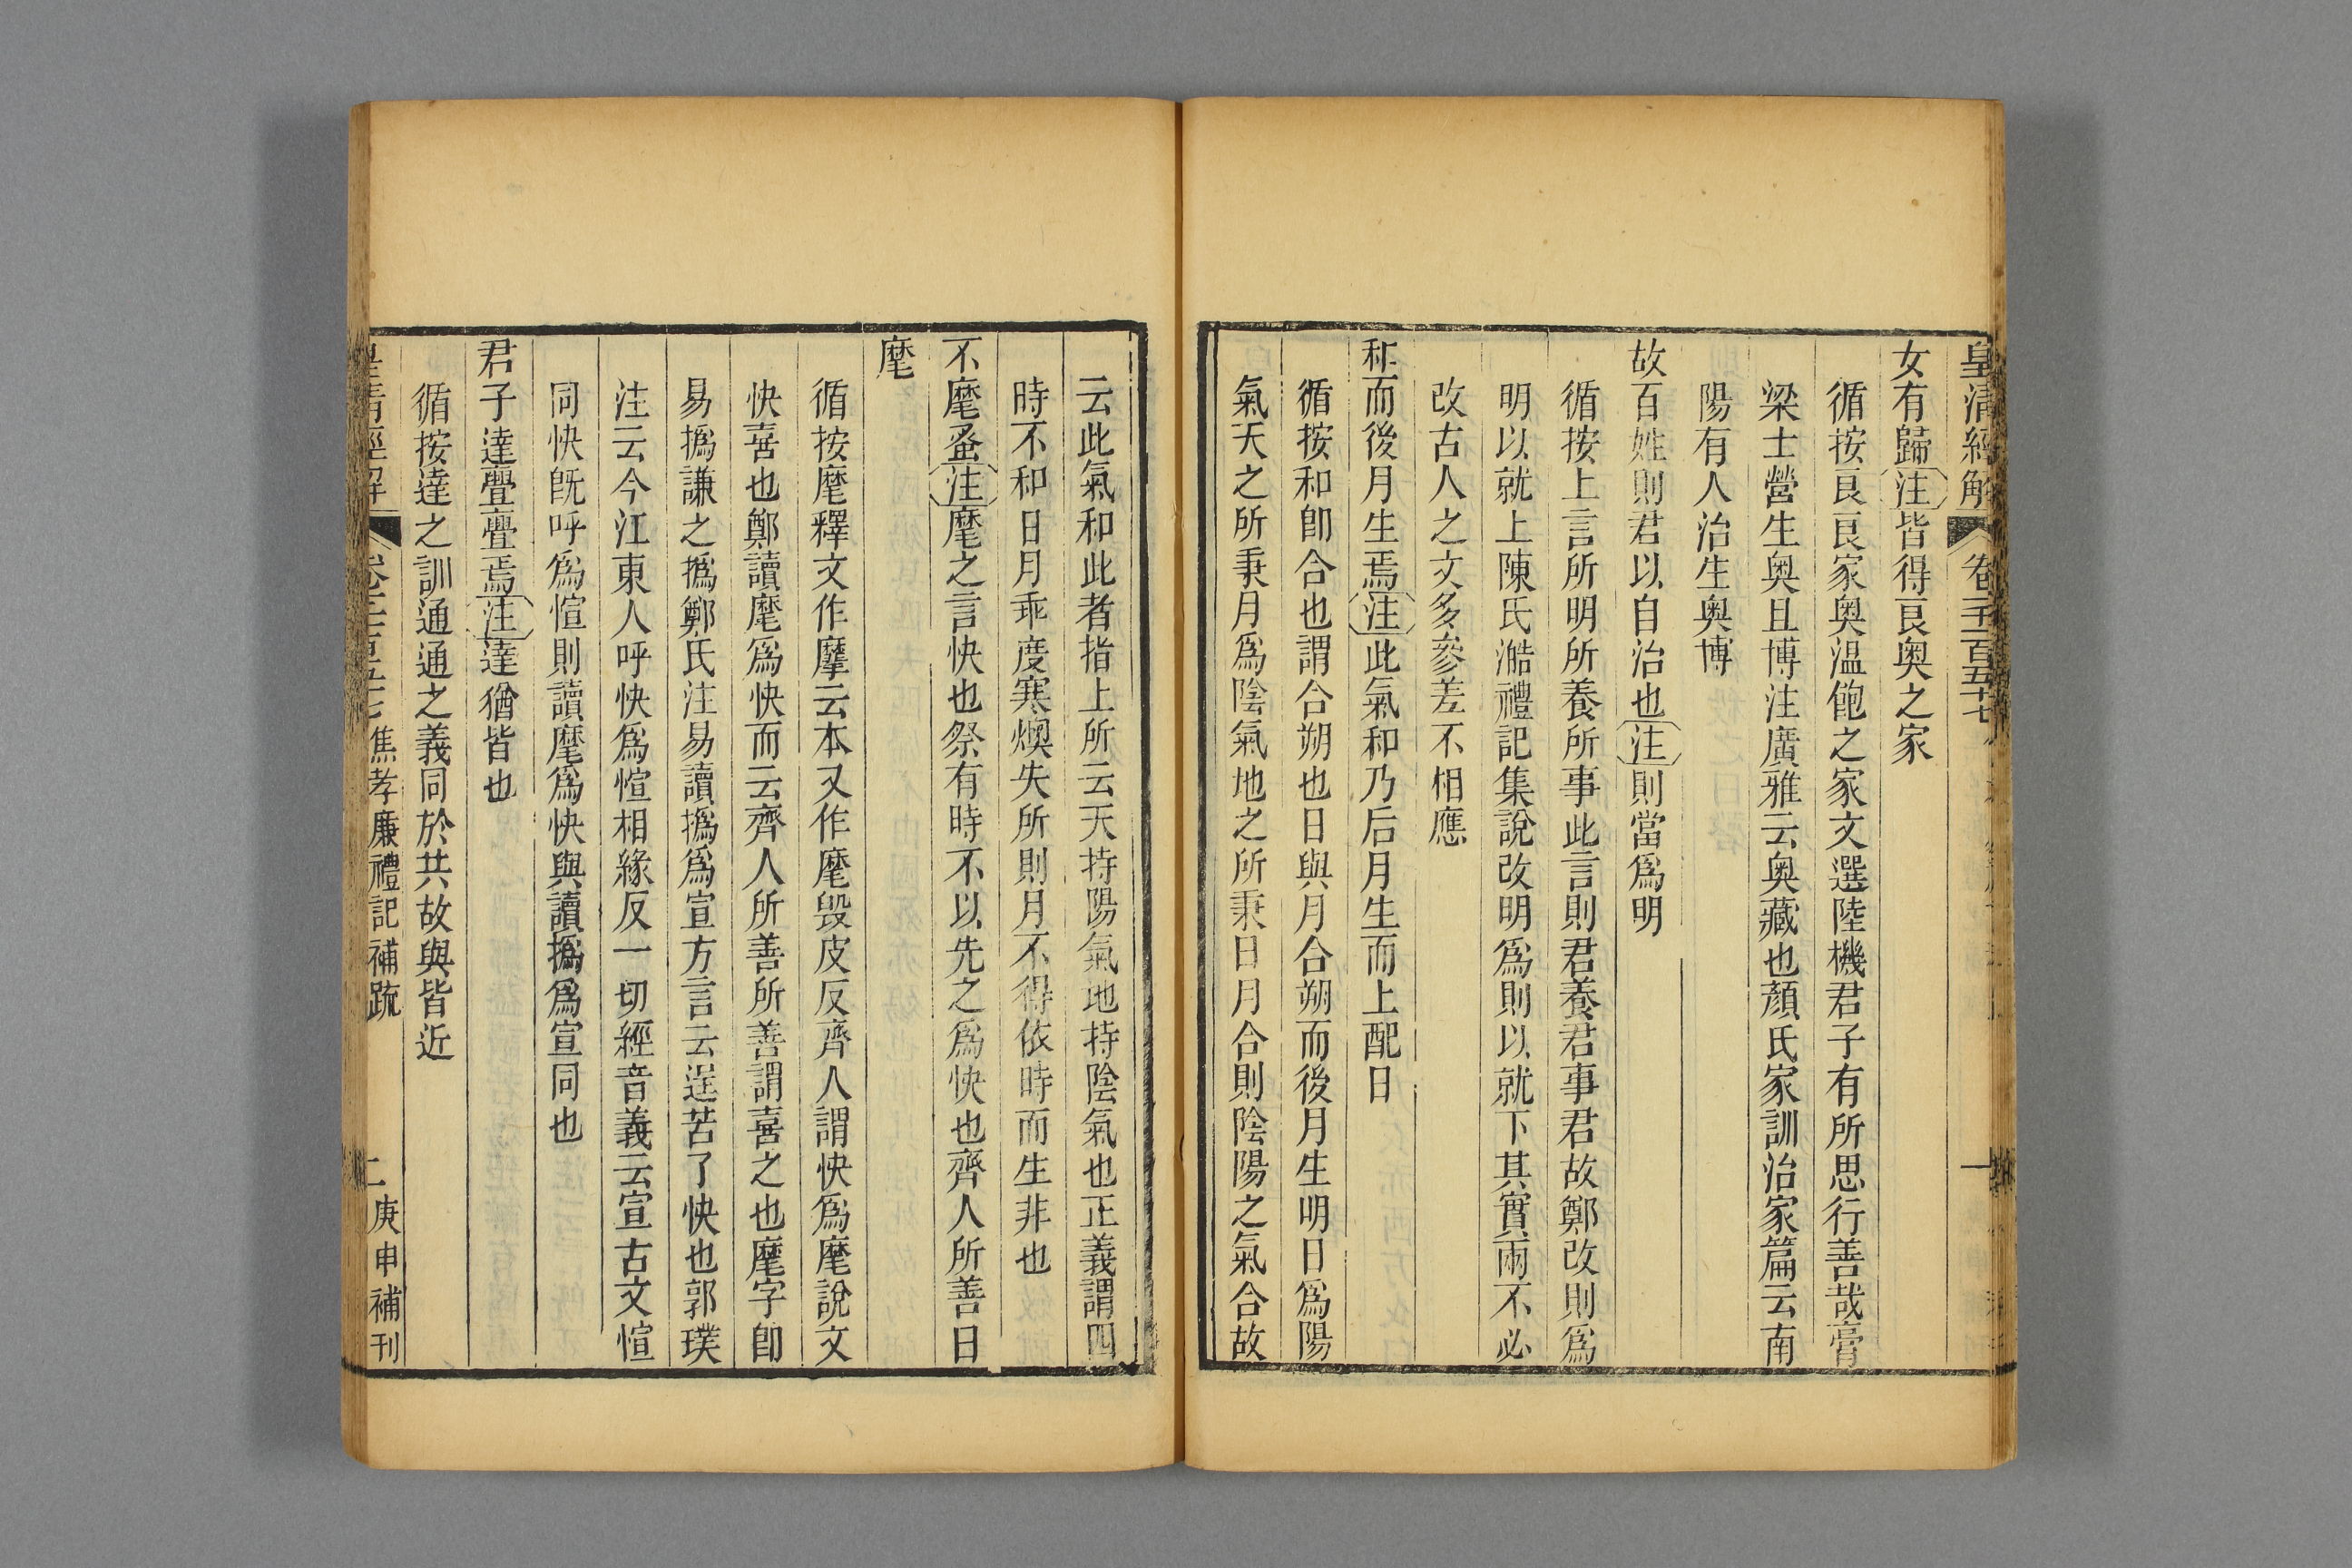 皇清經解 卷一千一百五十七 一
女有歸注皆得良奧之家
循按良良家奧溫飽之家文選陸機君子有所思行善哉膏
梁士營生奧且博注廣雅云奧藏也顏氏家訓治家篇云南
陽有人治生奧博
故百姓則君以自治也注則當爲明
循按上言所明所養所事此言則君養君事君故鄭改則爲
明以就上陳氏澔禮記集說改明爲則以就下其實兩不必
改古人之文多參差不相應
和而後月生焉注此氣和乃后月生而上配日
循按和卽合也謂合朔也日與月合朔而後月生明日爲陽
氣天之所秉月爲陰氣地之所秉日月合則陰陽之氣合故
云此氣和此者指上所云天持陽氣地持陰氣也正義謂四
時不和日月乖度寒燠失所則月不得依時而生非也
不麾蚤注麾之言快也祭有時不以先之爲快也齊人所善曰
麾
循按麾釋文作摩云本又作麾毁皮反齊人謂快爲麾說文
快喜也鄭讀麾爲快而云齊人所善所善謂喜之也麾字卽
易撝謙之撝鄭氏注易讀撝爲宣方言云逞苦了快也郭璞
注云今江東人呼快爲愃相緣反一切經音義云宣古文愃
同快旣呼爲愃則讀麾爲快與讀撝爲宣同也
君子達亹亹焉注達猶皆也
循按達之訓通通之義同於共故與皆近
皇清經解 卷 焦孝廉禮記補疏 二 庚申補刊